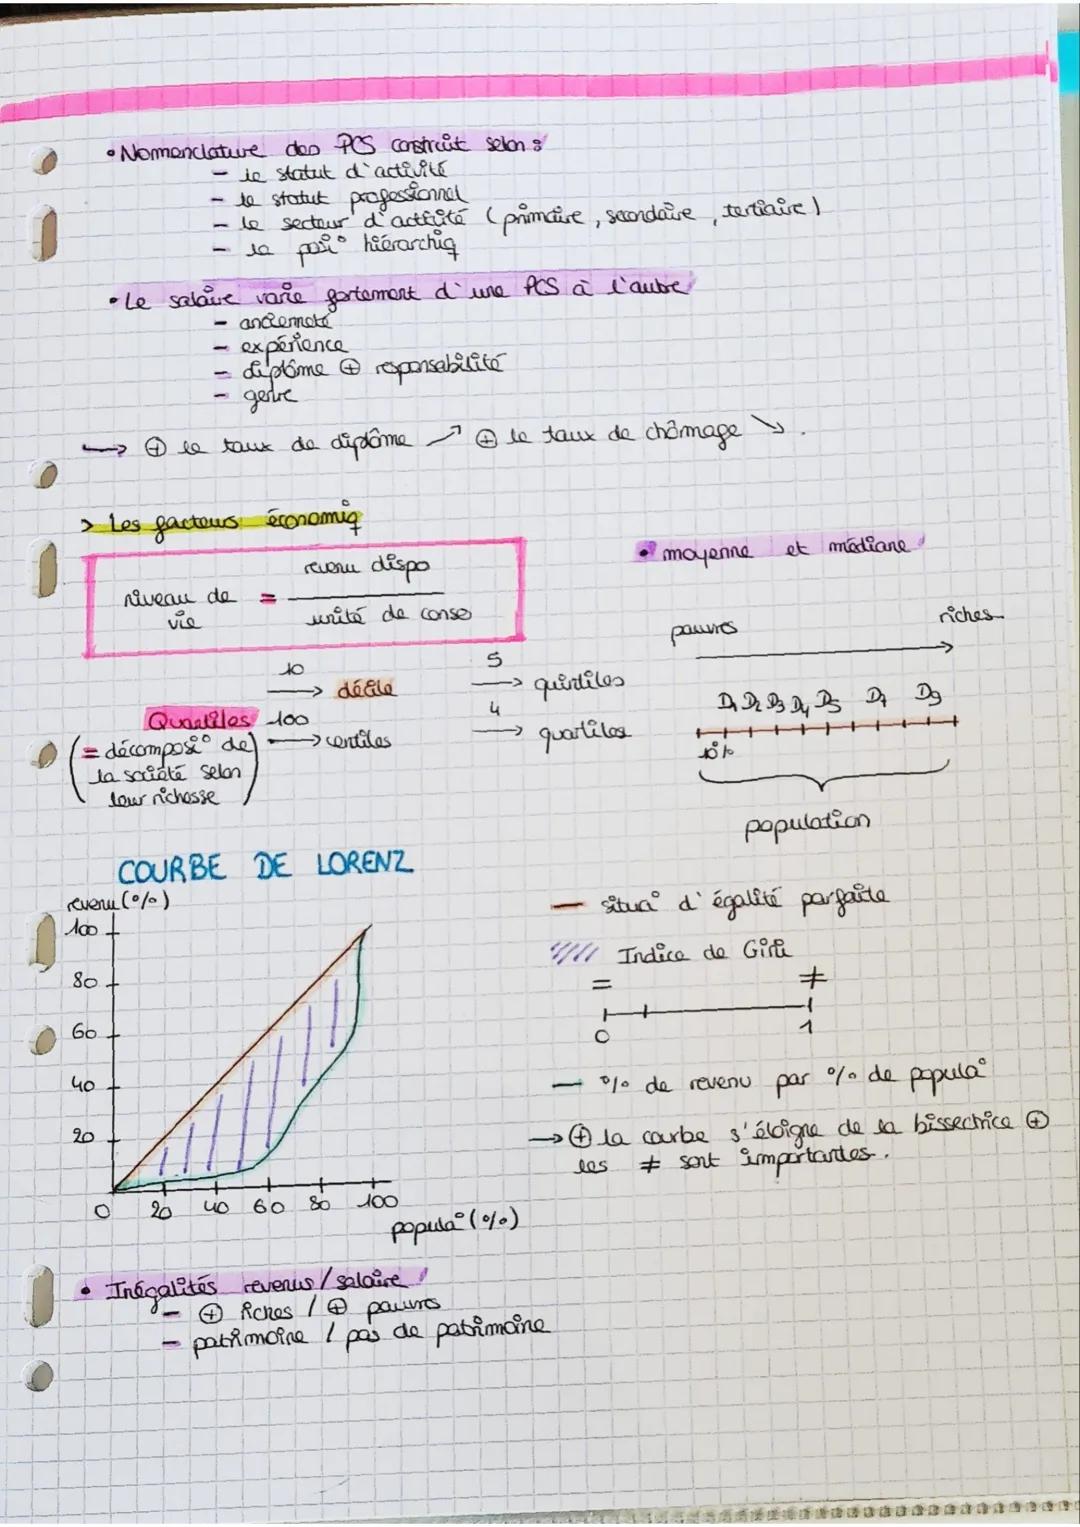 • Nomenclature des PCS construit selon :
- le statut d'activité
- le statut professionnel
- le secteur d'activité (primaire, secondaire, tertiaire)
- la posi° hiérarchiq
• Le salaire varie fortement d'une PCS à l'autre
- ancienneté
- expérience
- diplôme ⊕ responsabilité
- genre
↪ ⊕ le taux de diplôme ↗ ⊕ le taux de chômage ↘.
> Les facteurs économiq
niveau de vie = revenu dispo / unité de conso
• moyenne et médiane
pauvres riches
10 → décile
5 → quintiles
Quantiles 100 → centiles
4 → quartiles
(= décomposi° de
la société selon
leur richesse)
D1 D2 D3 D4 D5 D7 D9
10%
population
COURBE DE LORENZ
revenu (%)
100
80
60
40
20
0 20 40 60 80 100
popula° (%)
— situa° d'égalité parfaite
//// Indice de Gini
= ≠
0 1
— % de revenu par % de popula°
→ ⊕ la courbe s'éloigne de la bissectrice ⊕
les ≠ sont importantes.
• Inégalités revenus / salaire
- ⊕ riches / ⊕ pauvres
- patrimoine / pas de patrimoine